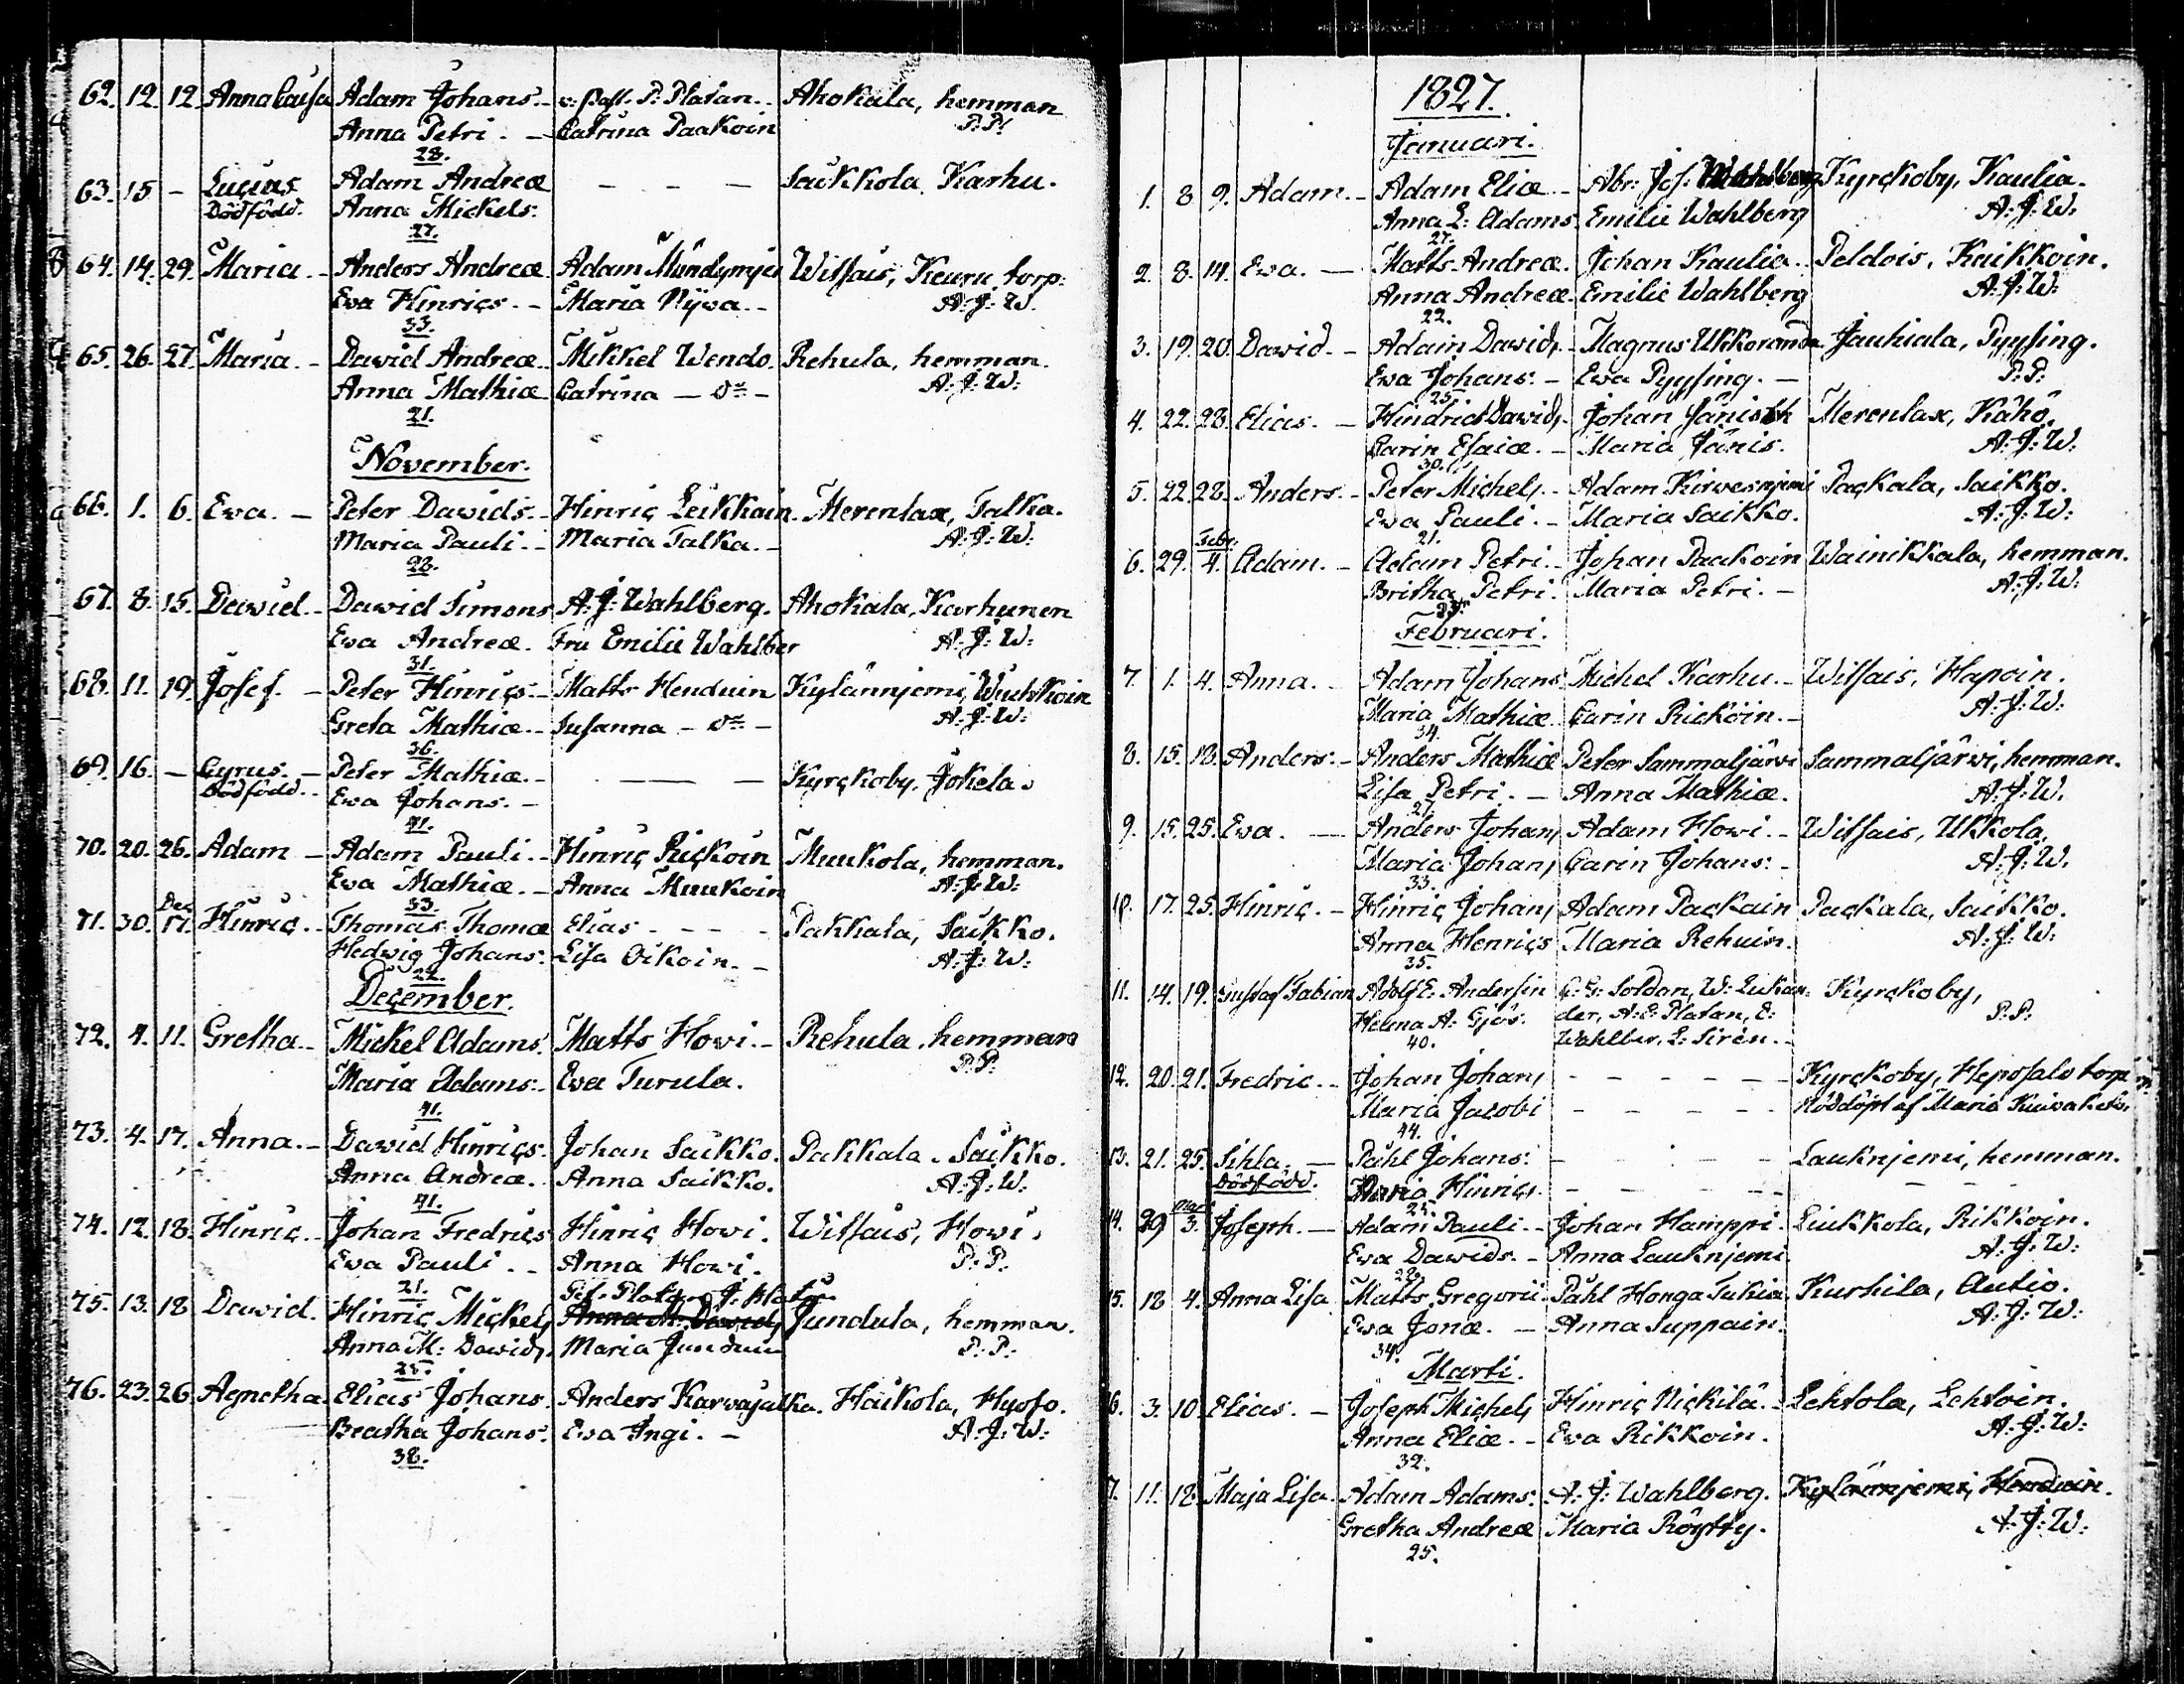 62. 12. 12. Anna Caisa Adam Johans. v: past. P: Platan. Ahokala, hemman
Anna Petri. Catrina Paakoin P: P:
28.
63. 15 – Lucius Adam Andreæ – – – Saikkola, Karhu.
Dödfödd. Anna Mickels.
27.
64. 14. 29. Maria. Anders Andreæ Adam Wilsais, Keuru torp.
Ewa Hinrics. Maria A: J: W.
33.
65. 26. 27. Maria. Dawid Andreæ. Mikkel Wendo. Rehula, hemman.
Anna Mathiæ Catrina – A: J: W:
21.
November.
66. 1. 6. Ewa. – Peter Dawids. Hinric Leikkain. Merenlax, Talka.
Maria Pauli. Maria Talka. A: J: W:
28.
67. 8. 15. Dawid. Dawid Simons A: J: Wahlberg. Ahokala, Karhunen
Ewa Andreæ. Fru Emilie Wahlber A: J: W:
31.
68. 11. 19. Josef. – Peter Hinrics. Matts Henduin Kylännjemi,
Greta Mathiæ. Susanna – A: J: W:
36.
69. 16. – Cyrus. – Peter Mathiæ. – – – Kyrckoby, Jokela.
Dödfödd. Ewa Johans. –
41.
70. 20. 26. Adam – Adam Pauli. Hinric Rickoin Muukola, hemman.
Ewa Mathiæ. Anna Muukoin A: J: W:
33.
Dec.
71. 30. 17. Hinric. Thomas Thomæ Elias – – – Pakkala, Saikko.
Hedwig Johans. Lisa Oikoin. – A: J: W:
22.
December.
72. 4. 11. Gretha. Mickel Adams. Matts Howi. Rehula, hemman
Maria Adams. Ewa Turula. P: P:
41.
73. 4. 17. Anna. – Dawid Hinrics. Johan Saikko. Pakkala, Saikko.
Anna Andreæ. Anna Saikko. A: J: W:
41.
74. 12. 18. Hinric. Johan Fredrics Hinric Howi. Wilsais, Howi.
Ewa Pauli. Anna Howi. P: P:
21.
75. 13. 18 Dawid. Hinric Mickels Anna M: Dawids Jundula, hemman.
Anna M: Dawids. Maria P: P:
25.
76. 23. 26 Agnetha. Elias Johans. Anders Karwajalka. Haikola, Hyoto.
Beatha Johans. Ewa Ingi. – A: J: W:
38.
1827.
Januari.
1. 8 9. Adam. Adam Eliæ Abr: Jos: Wahlberg Kyrckoby, Kaulia.
Anna L: Adams. Emilie Wahlberg A: J: W:
27.
2. 8. 14. Ewa. – Matts Andreæ. Johan Kaulia. Peldois, Kaikkoin.
Anna Andreæ. Emilie Wahlberg A: J: W:
22.
3. 19. 20. Dawid. – Adam Dawids. Magnus Ukkoranda Jauhiala, Pyysing.
Ewa Johans. – Ewa Pyysing. – P: P:
25.
4. 22. 28. Elias. – Hindrich Dawids. Johan Merenlax, Kähö.
Carin Esaiæ. – Maria Jänis. A: J: W:
30.
5. 22. 28. Anders. – Peter Michels. Adam Kirwesnjemi Packala, Saikko.
Ewa Pauli. – Maria Saikko. A: J: W:
21.
Febr.
6. 29. 4. Adam. – Adam Petri. Johan Paakoin Wainikkala, hemman.
Britha Petri. Maria Petri. – A: J: W:
Februari.
7. 1. 4. Anna. – Adam Johans Michel Karhu. – Wilsais, Hapoin.
Maria Mathiæ. Carin Rickoin. – A: J: W:
34.
8. 15. 18. Anders. – Anders Mathiæ Peter Sammaljärwi Sammaljärwi, hemman.
Lisa Petri. – Anna Mathiæ. A: J: W.
27.
9. 15. 25. Ewa. – Anders Johans Adam Howi. – Wilsais, Ukkola.
Maria Johans Carin Johans. – A: J: W.
33.
10. 17. 25. Hinric. – Hinric Johans Adam Packain Packala, Saikko.
Anna Henrics Maria Rehuin. A: J: W:
35.
11. 14. 19. Gustaf Fabian Adolf E: Andersin C: G: Soldan, W: Lukan- Kyrckoby,
Helena A: Gjös. der, A: E: Platan, E: P: P:
40. Wahlber, L: Siren.
12. 20. 21. Fredric. – Johan Johans – – – – – Kyrckoby, Heposalo torp
Maria Jacobi – – – – – Nöddöpt af Maria
44.
13. 21. 25. Sihla. – Påhl Johans: – – – – Lauknjemi, hemman.
Dödfödd. Maria Hinrics. – – – –
25.
Mars
14. 29 3. Joseph. – Adam Pauli. – Johan Hamppi. Liukkola, Rikkoin.
Ewa Dawids. – Anna Lauknjemi. A: J: W:
22.
15. 18 4. Anna Lisa Matts Gregorii. Påhl Honga Kurhila, Autio.
Ewa Jonæ. – Anna Suppain. A: J: W:
34.
Marti.
16. 3. 10. Elias. – Joseph Michels Hinric Nickilä. Lehtola, Lehtoin.
Anna Eliæ. – Ewa Rikkoin. A: J: W:
32.
17. 11. 12. Maja Lisa. Adam Adams. A: J: Wahlberg. Kylännjemi, Henduin.
Gretha Andreæ Maria Röytty. A: J: W:
25.